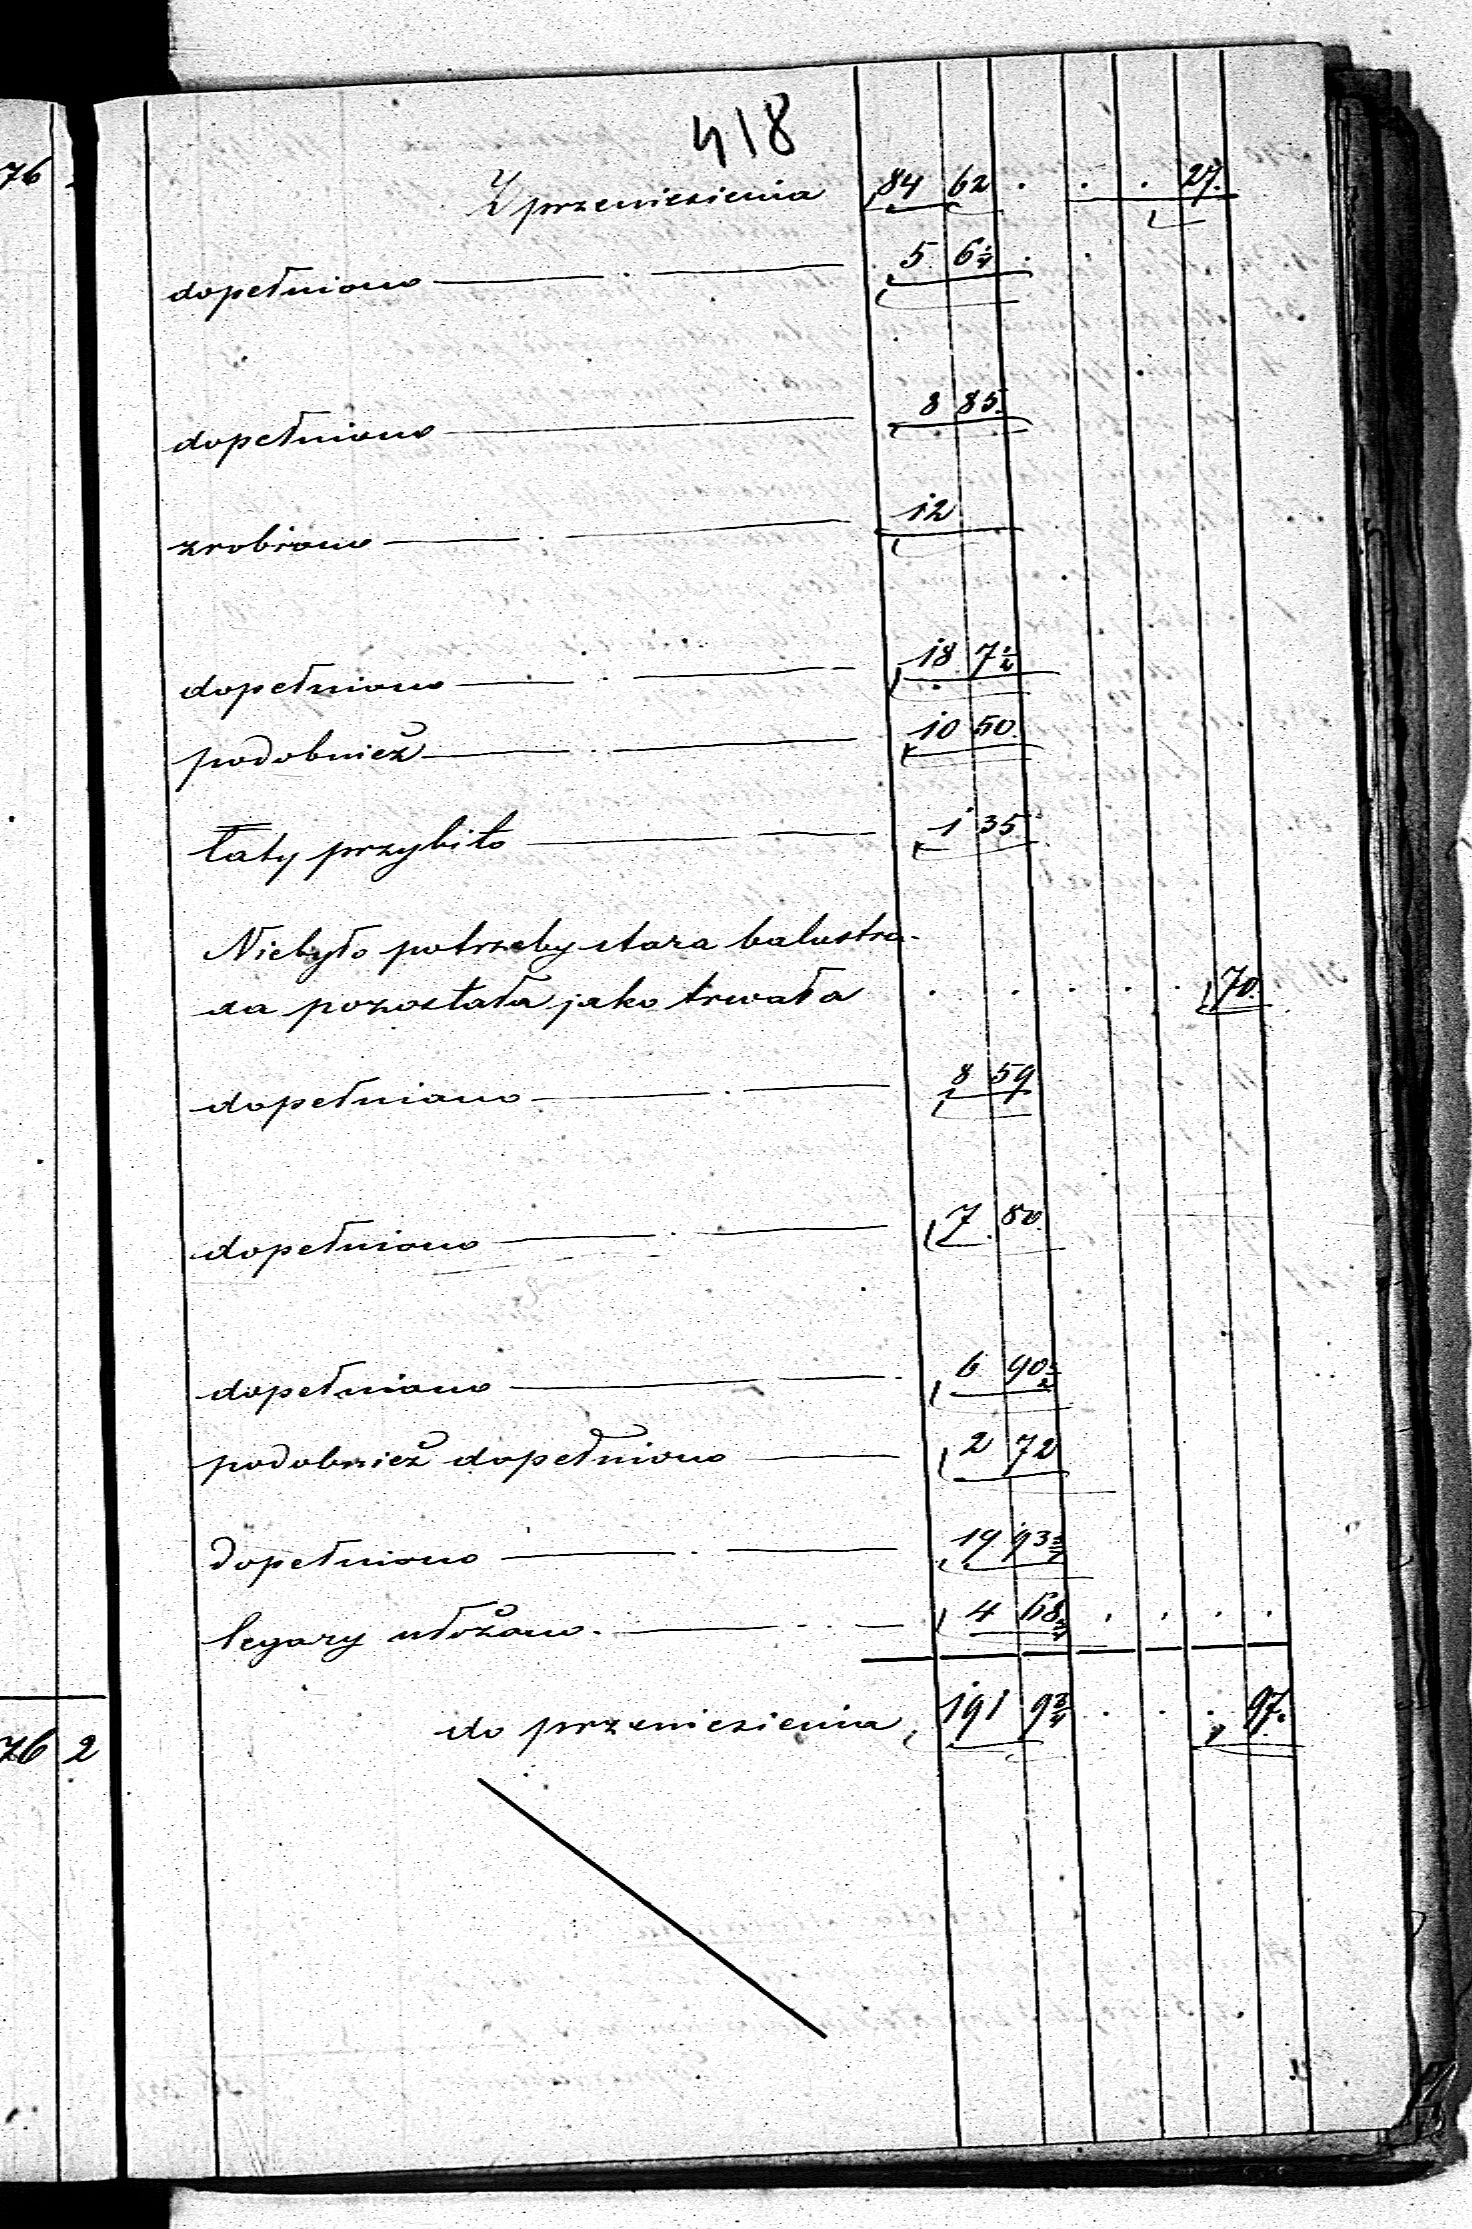 418
76
Z przeniesienia 84 62 . . . 27.
dopełniono — . — 5 6¼ . .
dopełniono — 8 85.
zrobiono — . — 12
dopełniono — . — 18 7½
podobnież — . — 10 50.
łaty przybito — 1 35
Niebyło potrzeby stara balustra-
da pozostała jako trwała . . . . . 70.
dopełniono — . — 8 59
dopełniono — . — 7 80.
dopełniono — 6 90½
podobnież dopełniono — 2 72
dopełniono — . — 19 93¾
legary ułożono. — 4 68¾ . . . .
do przeniesienia 191 9¾ . . . 97.
76 2